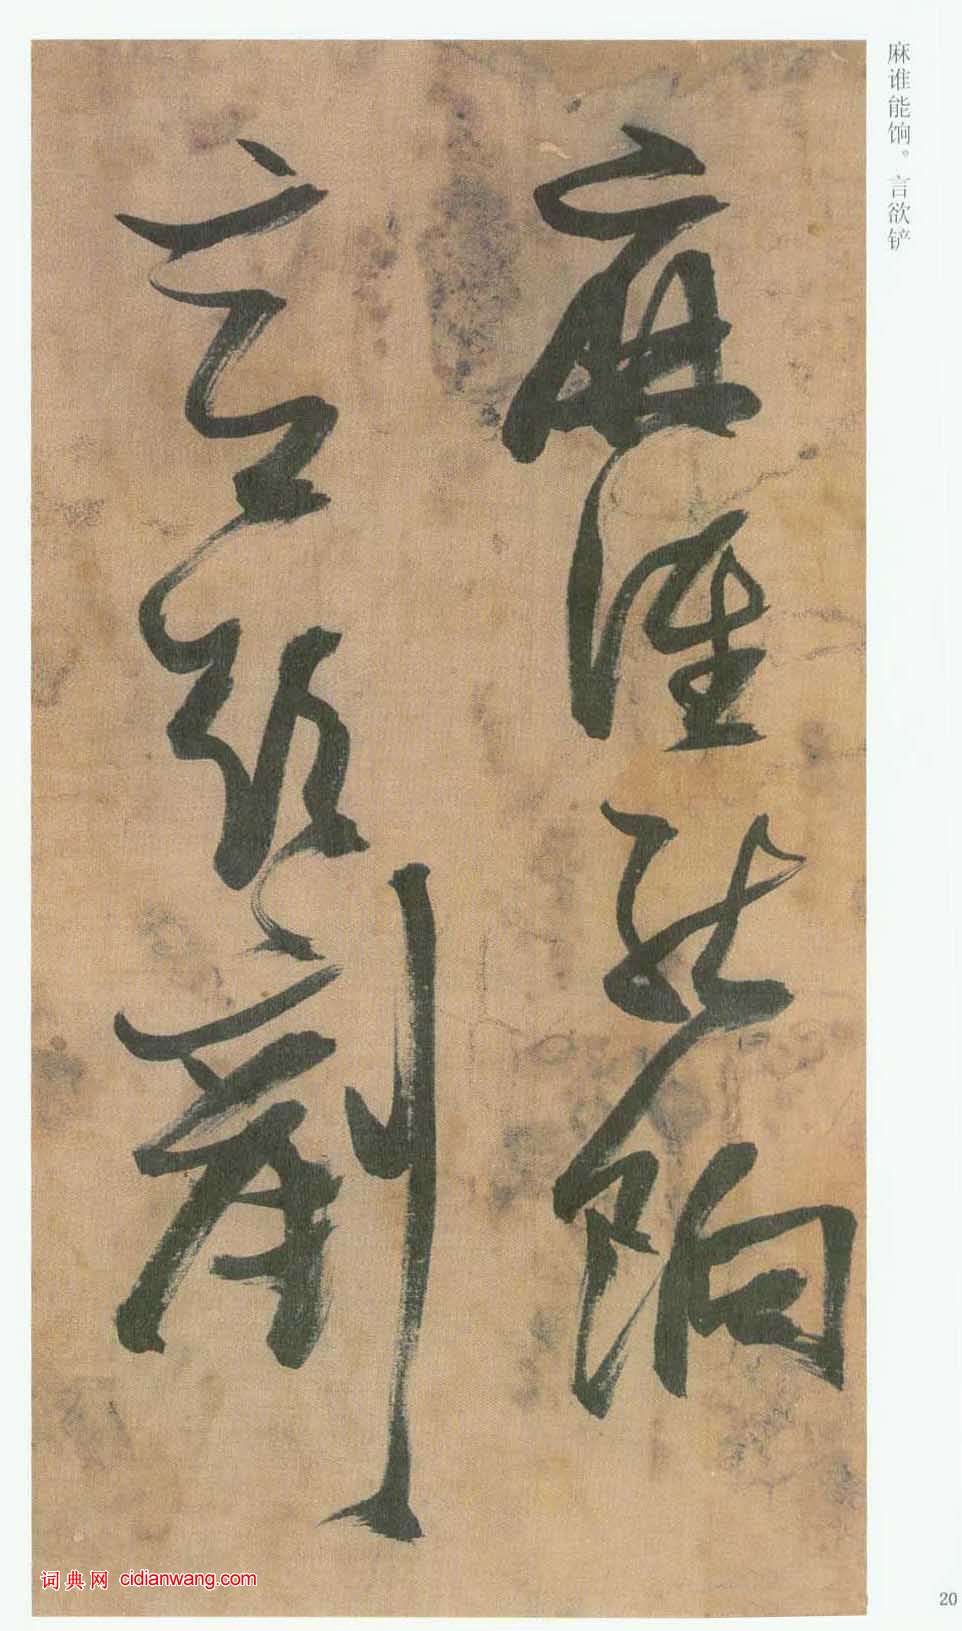 麻谁能饷。言欲铲
麻誰能餉
言欲剷
词典网 cidianwang.com
20